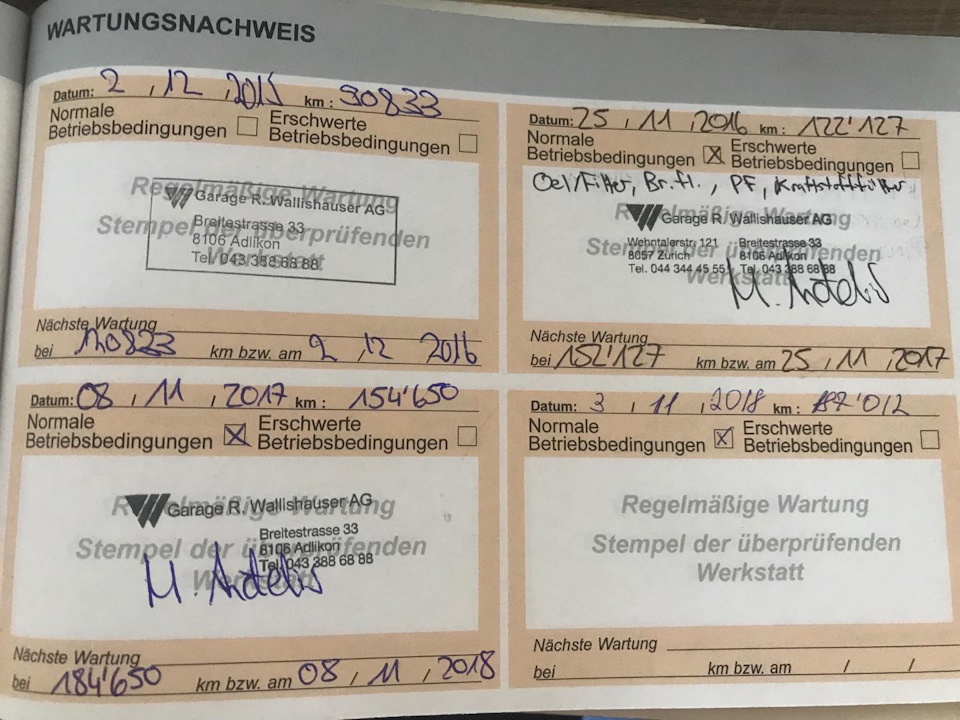 WARTUNGSNACHWEIS
Datum: 2 , 12 , 2015 km : 90833
Normale
Betriebsbedingungen
Erschwerte
Betriebsbedingungen
Regelmäßige Wartung
Stempel der überprüfenden
Werkstatt
Garage R. Wallishauser AG
Breitestrasse 33
8106 Adlikon
Tel. 043 388 68 88
Nächste Wartung
bei 120823 km bzw. am 2 , 12 2016
Datum: 25 , 11 , 2016 km : 122'127
Normale
Betriebsbedingungen X
Erschwerte
Betriebsbedingungen
Oel/Filter, Br.fl. , PF, Kraftstofffilter
Regelmäßige Wartung
Stempel der überprüfenden
Werkstatt
Garage R. Wallishauser AG
Wehntalerstr. 121 Breitestrasse 33
8057 Zürich 8106 Adlikon
Tel. 044 344 45 55 Tel. 043 388 68 88
Nächste Wartung
bei 152'127 km bzw. am 25 , 11 , 2017
Datum: 08 , 11 , 2017 km : 154'650
Normale
Betriebsbedingungen X
Erschwerte
Betriebsbedingungen
Regelmäßige Wartung
Stempel der überprüfenden
Werkstatt
Garage R. Wallishauser AG
Breitestrasse 33
8106 Adlikon
Tel. 043 388 68 88
Nächste Wartung
bei 184'650 km bzw. am 08 / 11 , 2018
Datum: 3 , 11 , 2018 km :
Normale
Betriebsbedingungen X
Erschwerte
Betriebsbedingungen
Regelmäßige Wartung
Stempel der überprüfenden
Werkstatt
Nächste Wartung
bei km bzw. am / /